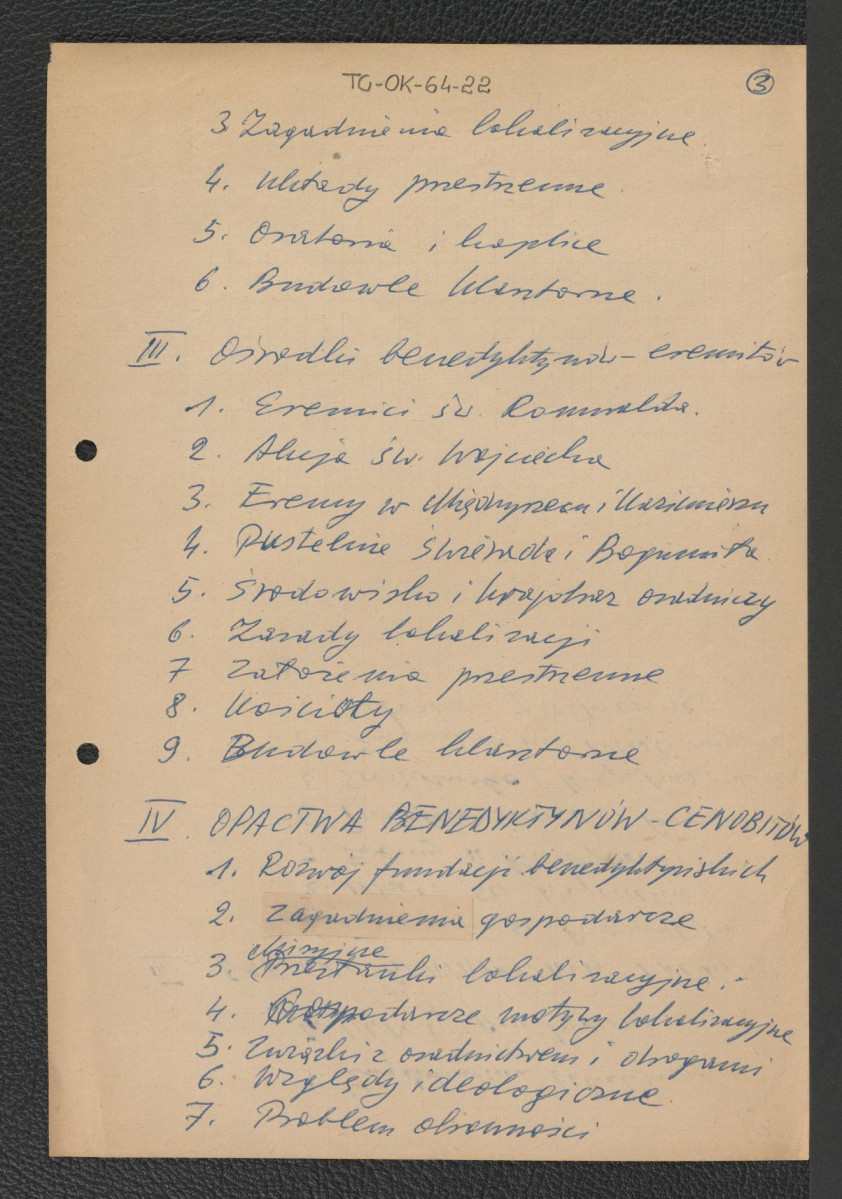 TG-OK-64-22 3
3 Zagadnienia lokalizacyjne
4. Układy przestrzenne
5. Oratoria i kaplice
6. Budowle klasztorne.
III. Ośrodki benedyktynów-eremitów
1. Eremici św. Romualda.
2. Akcja św. Wojciecha
3. Eremy w Międzyrzeczu i Kazimierzu
4. Pustelnie Świerada i Bogumiła
5. Środowisko i krajobraz osadniczy
6. Zasady lokalizacji
7 Założenia przestrzenne
8. Kościoły
9. Budowle klasztorne
IV. OPACTWA BENEDYKTYNÓW-CENOBITÓW
1. Rozwój fundacji benedyktyńskich
2. Zagadnienia gospodarcze
Misyjne
3. Przesłanki lokalizacyjne.
4. Gospodarcze motywy lokalizacyjne
5. Związki z osadnictwem i drogami
6. Względy ideologiczne
7. Problem obronności